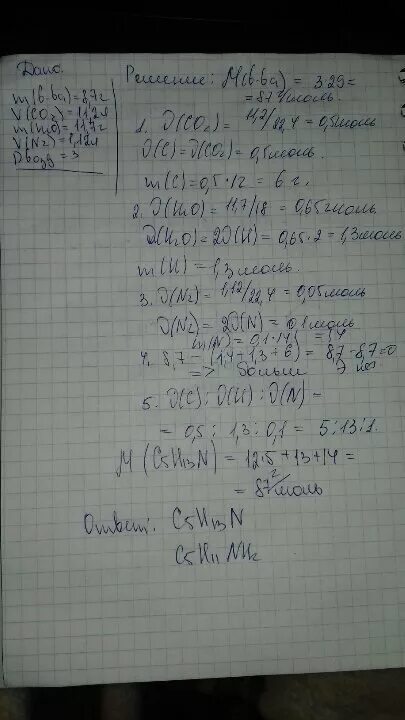 Дано:
m(в-ва) = 8,7г
V(CO₂) = 11,2л
m(H₂O) = 11,7г
V(N₂) = 1,12л
Dвозд = 3
Решение: M(в-ва) = 3·29 =
= 87 г/моль.
1. ν(CO₂) = 11,2/22,4 = 0,5моль
ν(C) = ν(CO₂) = 0,5моль.
m(C) = 0,5·12 = 6 г.
2. ν(H₂O) = 11,7/18 = 0,65моль
ν(H₂O) = 2ν(H) = 0,65·2 = 1,3моль
m(H) = 1,3моль.
3. ν(N₂) = 1,12/22,4 = 0,05моль
ν(N₂) = 2ν(N) = 0,1моль
m(N) = 0,1·14 = 1,4
4. 8,7 - (1,4+1,3+6) = 8,7-8,7=0
=> больше Э нет.
5. ν(C) : ν(H) : ν(N) =
= 0,5 : 1,3 : 0,1 = 5:13:1.
M (C₅H₁₃N) = 12·5 + 13 + 14 =
= 87 г/моль
Ответ: C₅H₁₃N
C₅H₁₁NH₂